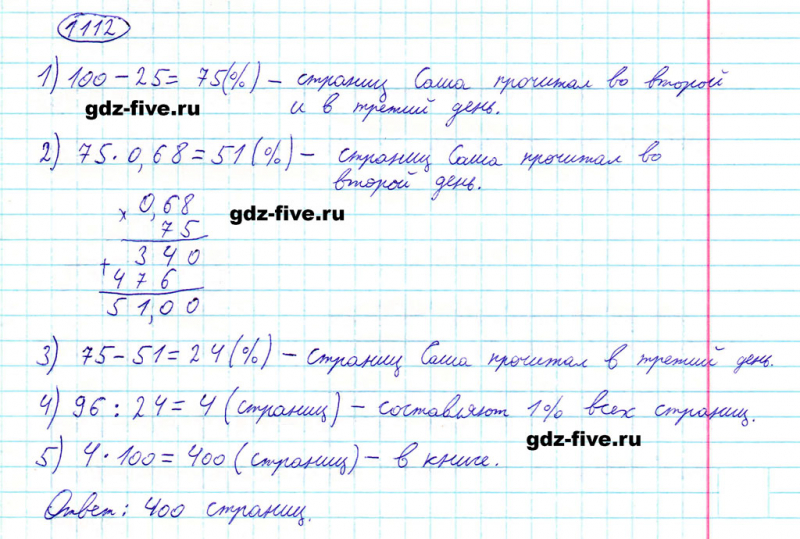 1112
1) 100 - 25 = 75(%) - страниц Саша прочитал во второй
и в третий день.
gdz-five.ru
2) 75 · 0,68 = 51 (%) - страниц Саша прочитал во
второй день.
× 0,68
75
gdz-five.ru
+ 340
476
51,00
3) 75 - 51 = 24 (%) - страниц Саша прочитал в третий день.
4) 96 : 24 = 4 (страниц) - составляют 1% всех страниц.
gdz-five.ru
5) 4 · 100 = 400 (страниц) - в книге.
Ответ: 400 страниц.